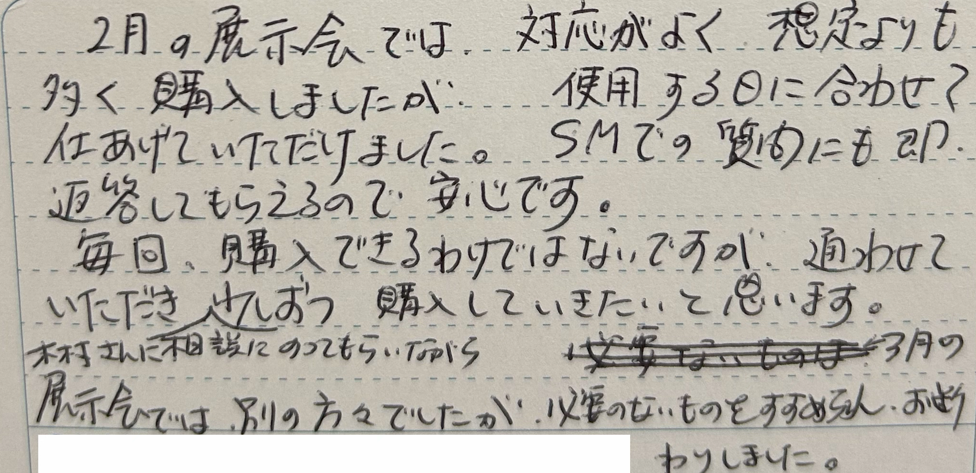 2月の展示会では、対応がよく 想定よりも
多く購入しましたが、使用する日に合わせて
仕あげていただけました。SMでの質問にも即
返答してもらえるので安心です。
毎回、購入できるわけではないですが、通わせて
いただき 少しずつ 購入していきたいと思います。
木村さんに相談にのってもらいながら 必要ないものは 3月の
展示会では、別の方々でしたが、必要のないものをすすめられ、お断
わりしました。